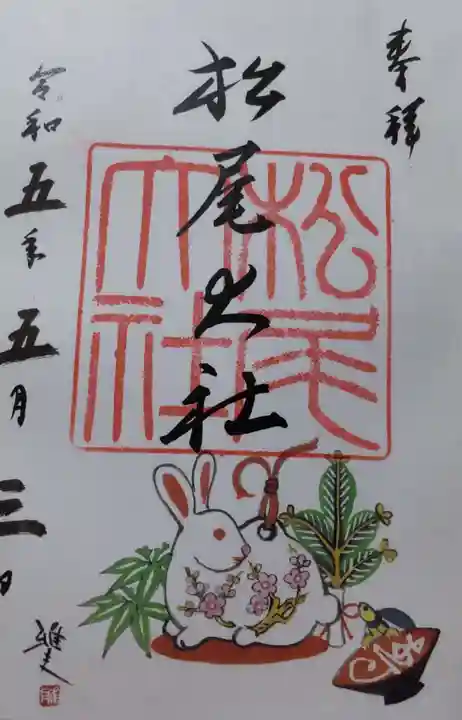 奉拝
松尾大社
松尾大社
令和五年五月三日
雅文